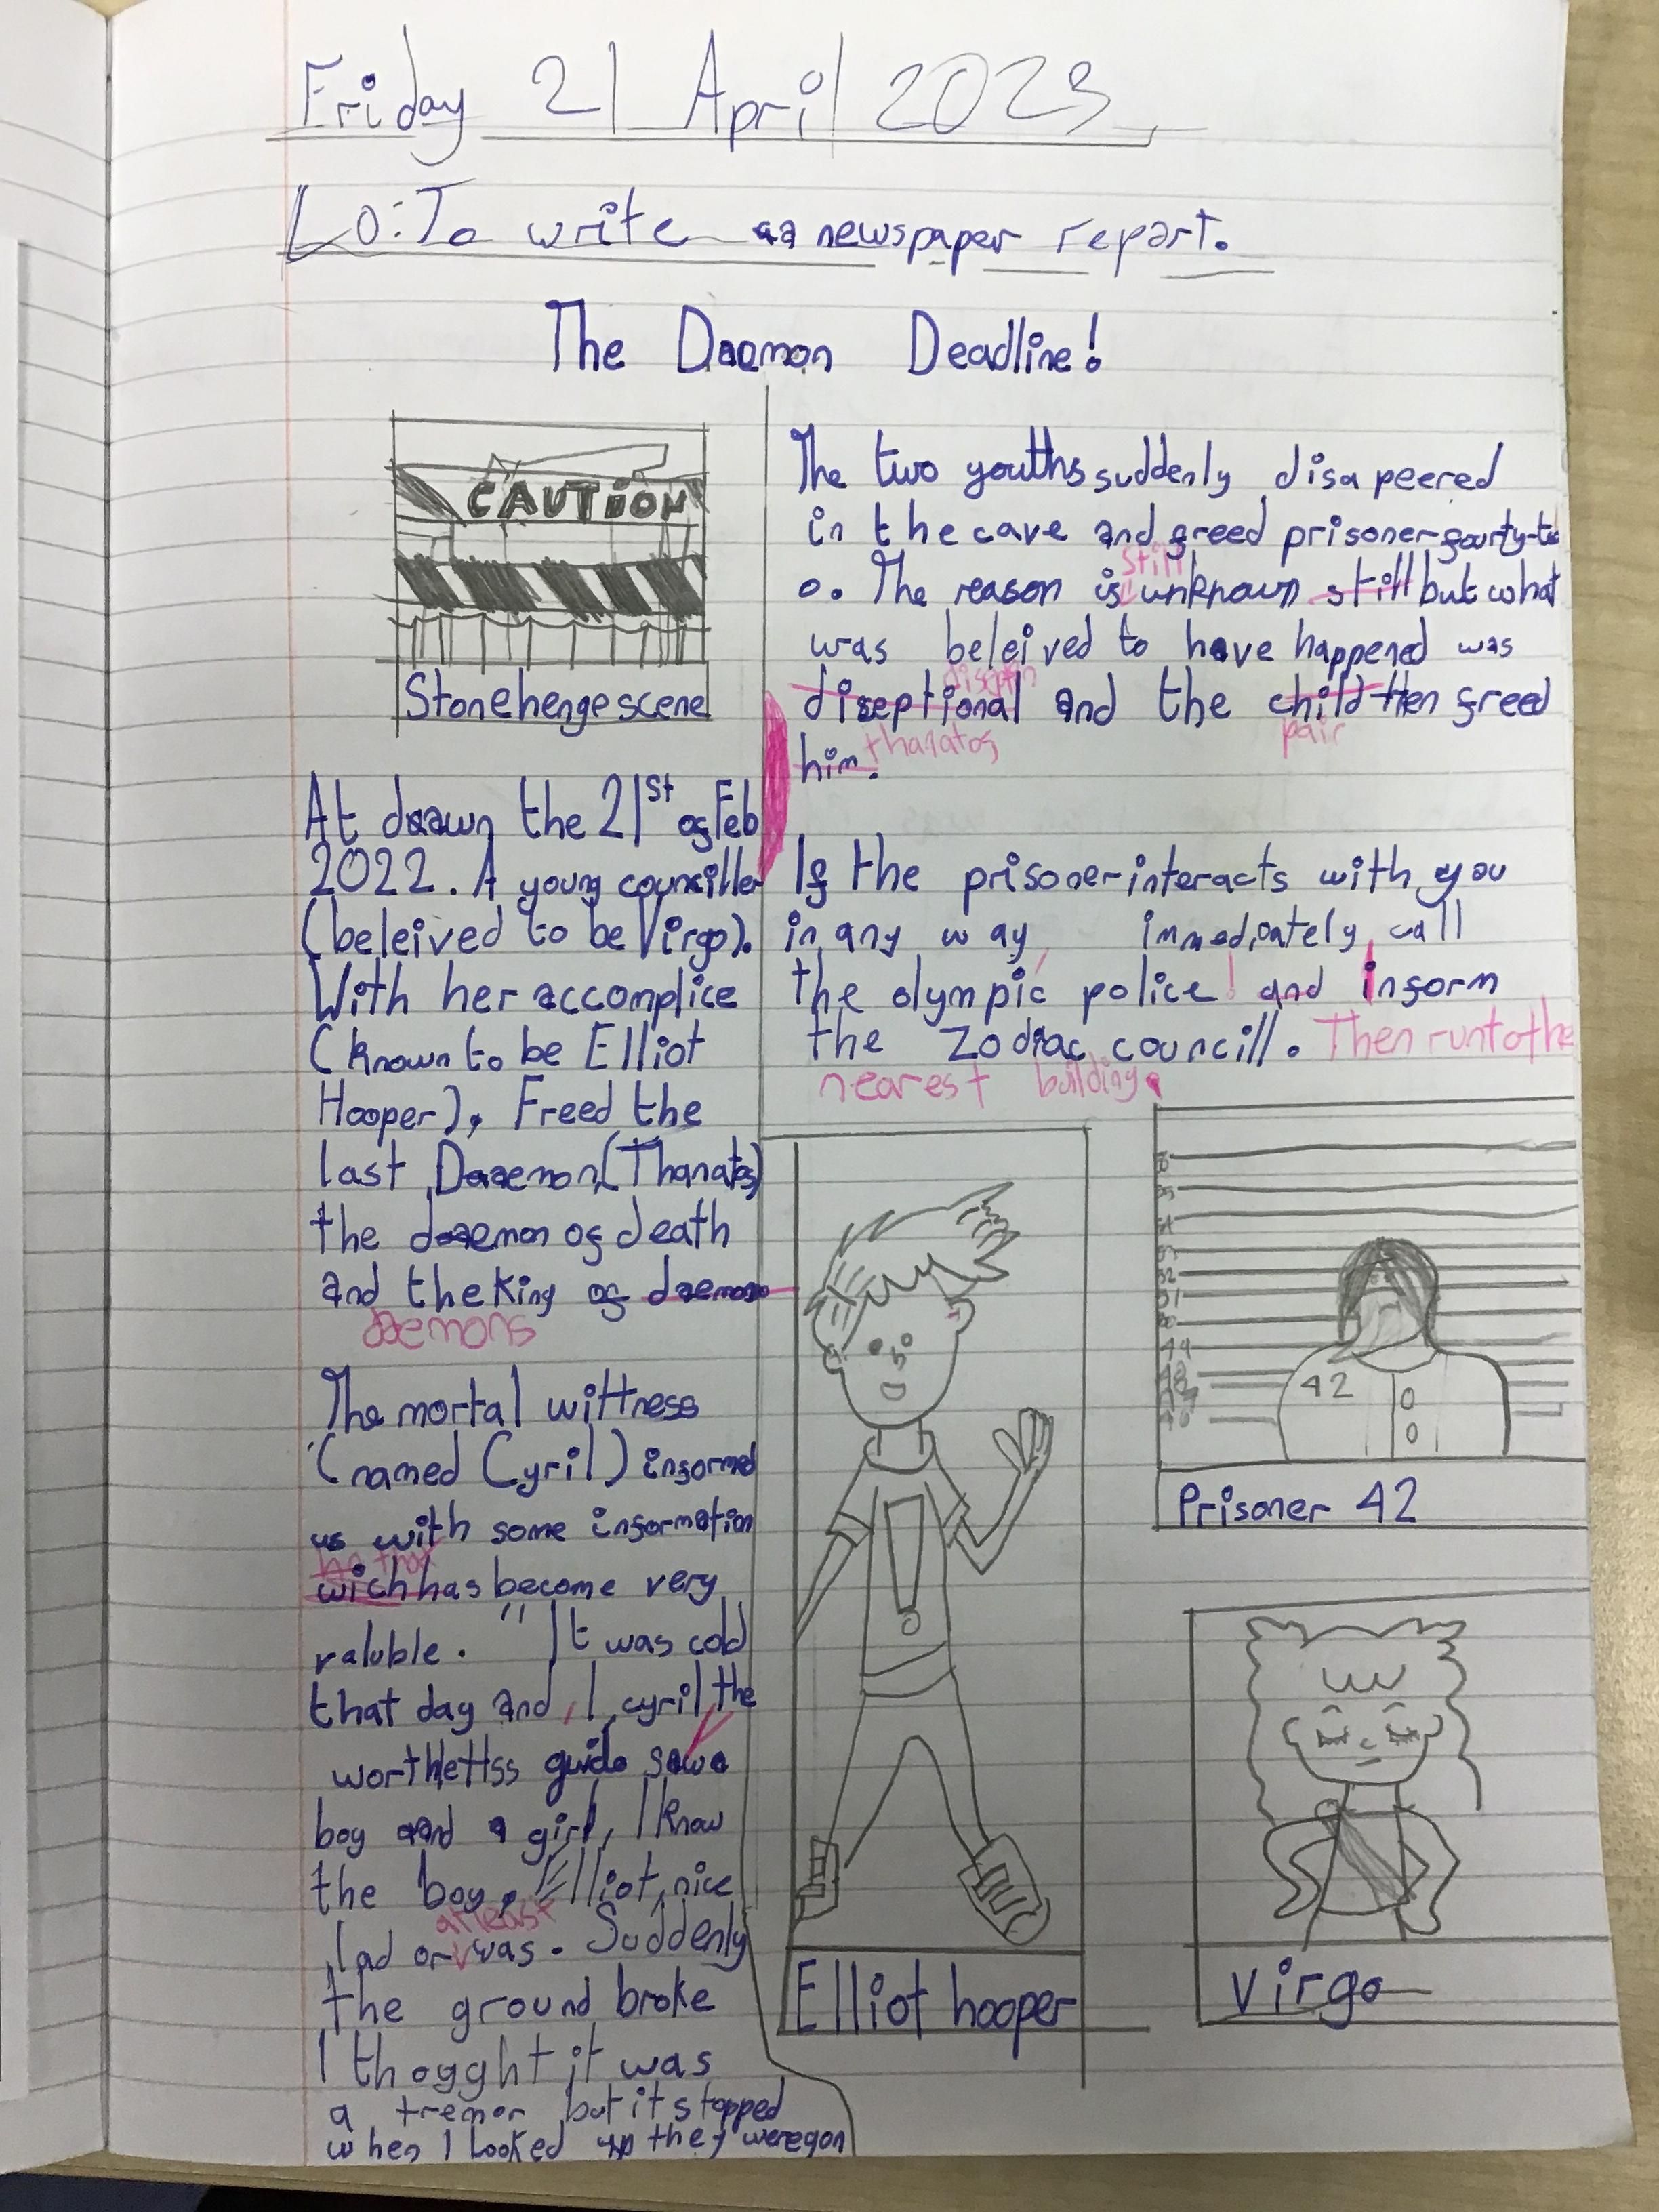 Friday 21 April 2023
LO: To write a newspaper report.
The Daemon Deadline!
CAUTION
Stonehenge scene
At dawn the 21st of Feb
2022. A young counciller
(beleived to be Virgo).
With her accomplice
(known to be Elliot
Hooper), Freed the
last Daemon, (Thanatos)
the daemon of death
and the King of daemons
daemons
The mortal wittness
(named Cyril) informed
us with some information
wich has become very
valuble. "It was cold
that day and, I, cyril the
worthless guide saw a
boy and a girl, I know
the boy, Elliot, nice
at least
lad or was. Suddenly
the ground broke
I thogght it was
a tremor but it stopped
when I looked up they were gon
The two youths suddenly disapeered
in the cave and freed prisoner fourty-tw
still
o. The reason is unknown still but what
was beleived to have happened was
diseptional and the child then freed
pair
him. thanatos
If the prisoner interacts with you
in any way, immediately call
the olympic police! and inform
the Zodiac councill. Then run to the
nearest building.
42
Prisoner 42
Elliot hooper
Virgo